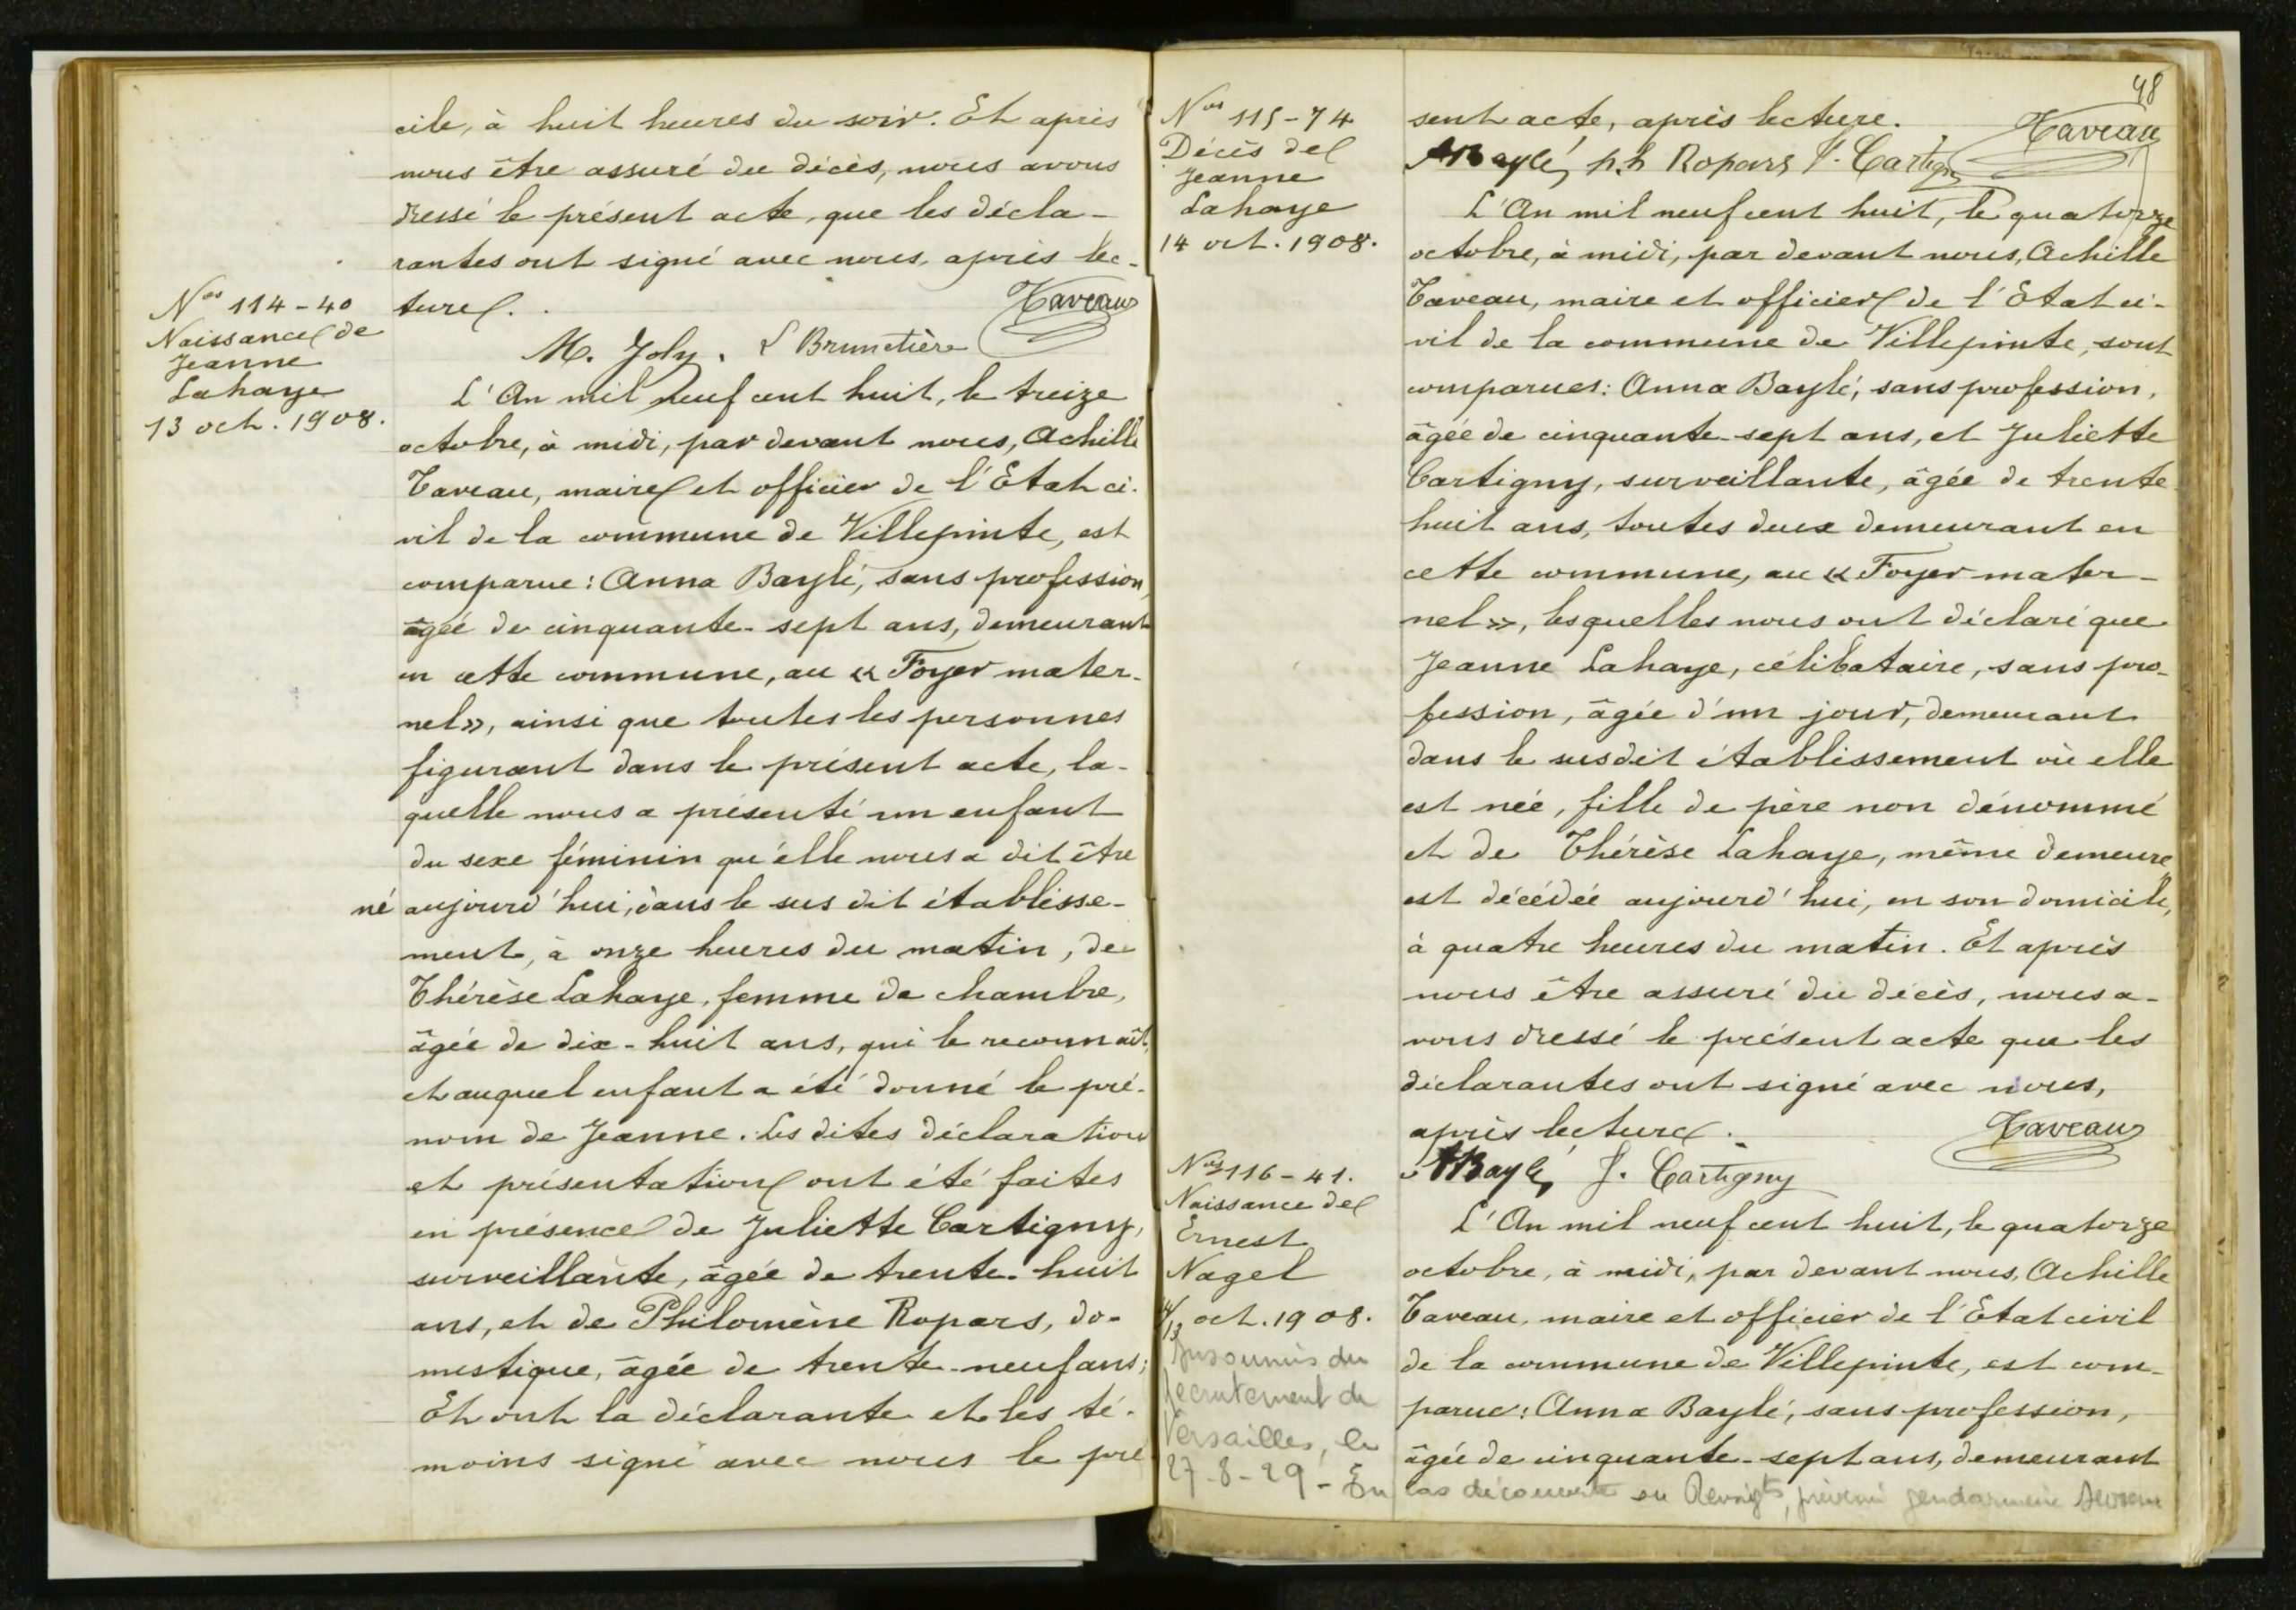 cile, à huit heures du soir. Et après
nous être assuré du décès, nous avons
dressé le présent acte, que les décla-
rantes ont signé avec nous, après lec-
ture.
Taveau
M. Joly. L Brunetière
Nos 114-40
Naissance de
Jeanne
Lahaye
13 oct. 1908.
L'An mil neuf cent huit, le treize
octobre, à midi, par devant nous, Achille
Taveau, maire et officier de l'Etat ci-
vil de la commune de Villepinte, est
comparue : Anna Baylé, sans profession,
âgée de cinquante-sept ans, demeurant
en cette commune, au « Foyer mater-
nel », ainsi que toutes les personnes
figurant dans le présent acte, la-
quelle nous a présenté un enfant
du sexe féminin qu'elle nous a dit être
né aujourd'hui, dans le sus dit établisse-
ment, à onze heures du matin, de
Thérèse Lahaye, femme de chambre,
âgée de dix-huit ans, qui le reconnaît,
et auquel enfant a été donné le pré-
nom de Jeanne. Les dites déclaration
et présentation ont été faites
en présence de Juliette Cartigny,
surveillante, âgée de trente-huit
ans, et de Philomène Ropars, do-
mestique, âgée de trente-neuf ans;
Et ont la déclarante et les té-
moins signé avec nous le pré
48
sent acte, après lecture.
Taveau
ABaylé, p.h Ropars J. Cartigny
Nos 115-74
Décès de
Jeanne
Lahaye
14 oct. 1908.
L'An mil neuf cent huit, le quatorze
octobre, à midi, par devant nous, Achille
Taveau, maire et officier de l'Etat ci-
vil de la commune de Villepinte, sont
comparues : Anna Baylé, sans profession,
âgée de cinquante-sept ans, et Juliette
Cartigny, surveillante, âgée de trente
huit ans, toutes deux demeurant en
cette commune, au « Foyer mater-
nel », lesquelles nous ont déclaré que
Jeanne Lahaye, célibataire, sans pro-
fession, âgée d'un jour, demeurant
dans le susdit établissement où elle
est née, fille de père non dénommé
et de Thérèse Lahaye, même demeure,
est décédée aujourd'hui, en son domicile,
à quatre heures du matin. Et après
nous être assuré du décès, nous a-
vons dressé le présent acte que les
déclarantes ont signé avec nous,
après lecture.
Taveau
ABaylé, J. Cartigny
Nos 116-41.
Naissance de
Ernest
Nagel
14/13 oct. 1908.
Insoumis du
recrutement de
Versailles, le
27-8-29 - En
cas découverte ou Renseigts, prévenir gendarmerie
L'An mil neuf cent huit, le quatorze
octobre, à midi, par devant nous, Achille
Taveau, maire et officier de l'Etat civil
de la commune de Villepinte, est com-
parue : Anna Baylé, sans profession,
âgée de cinquante-sept ans, demeurant